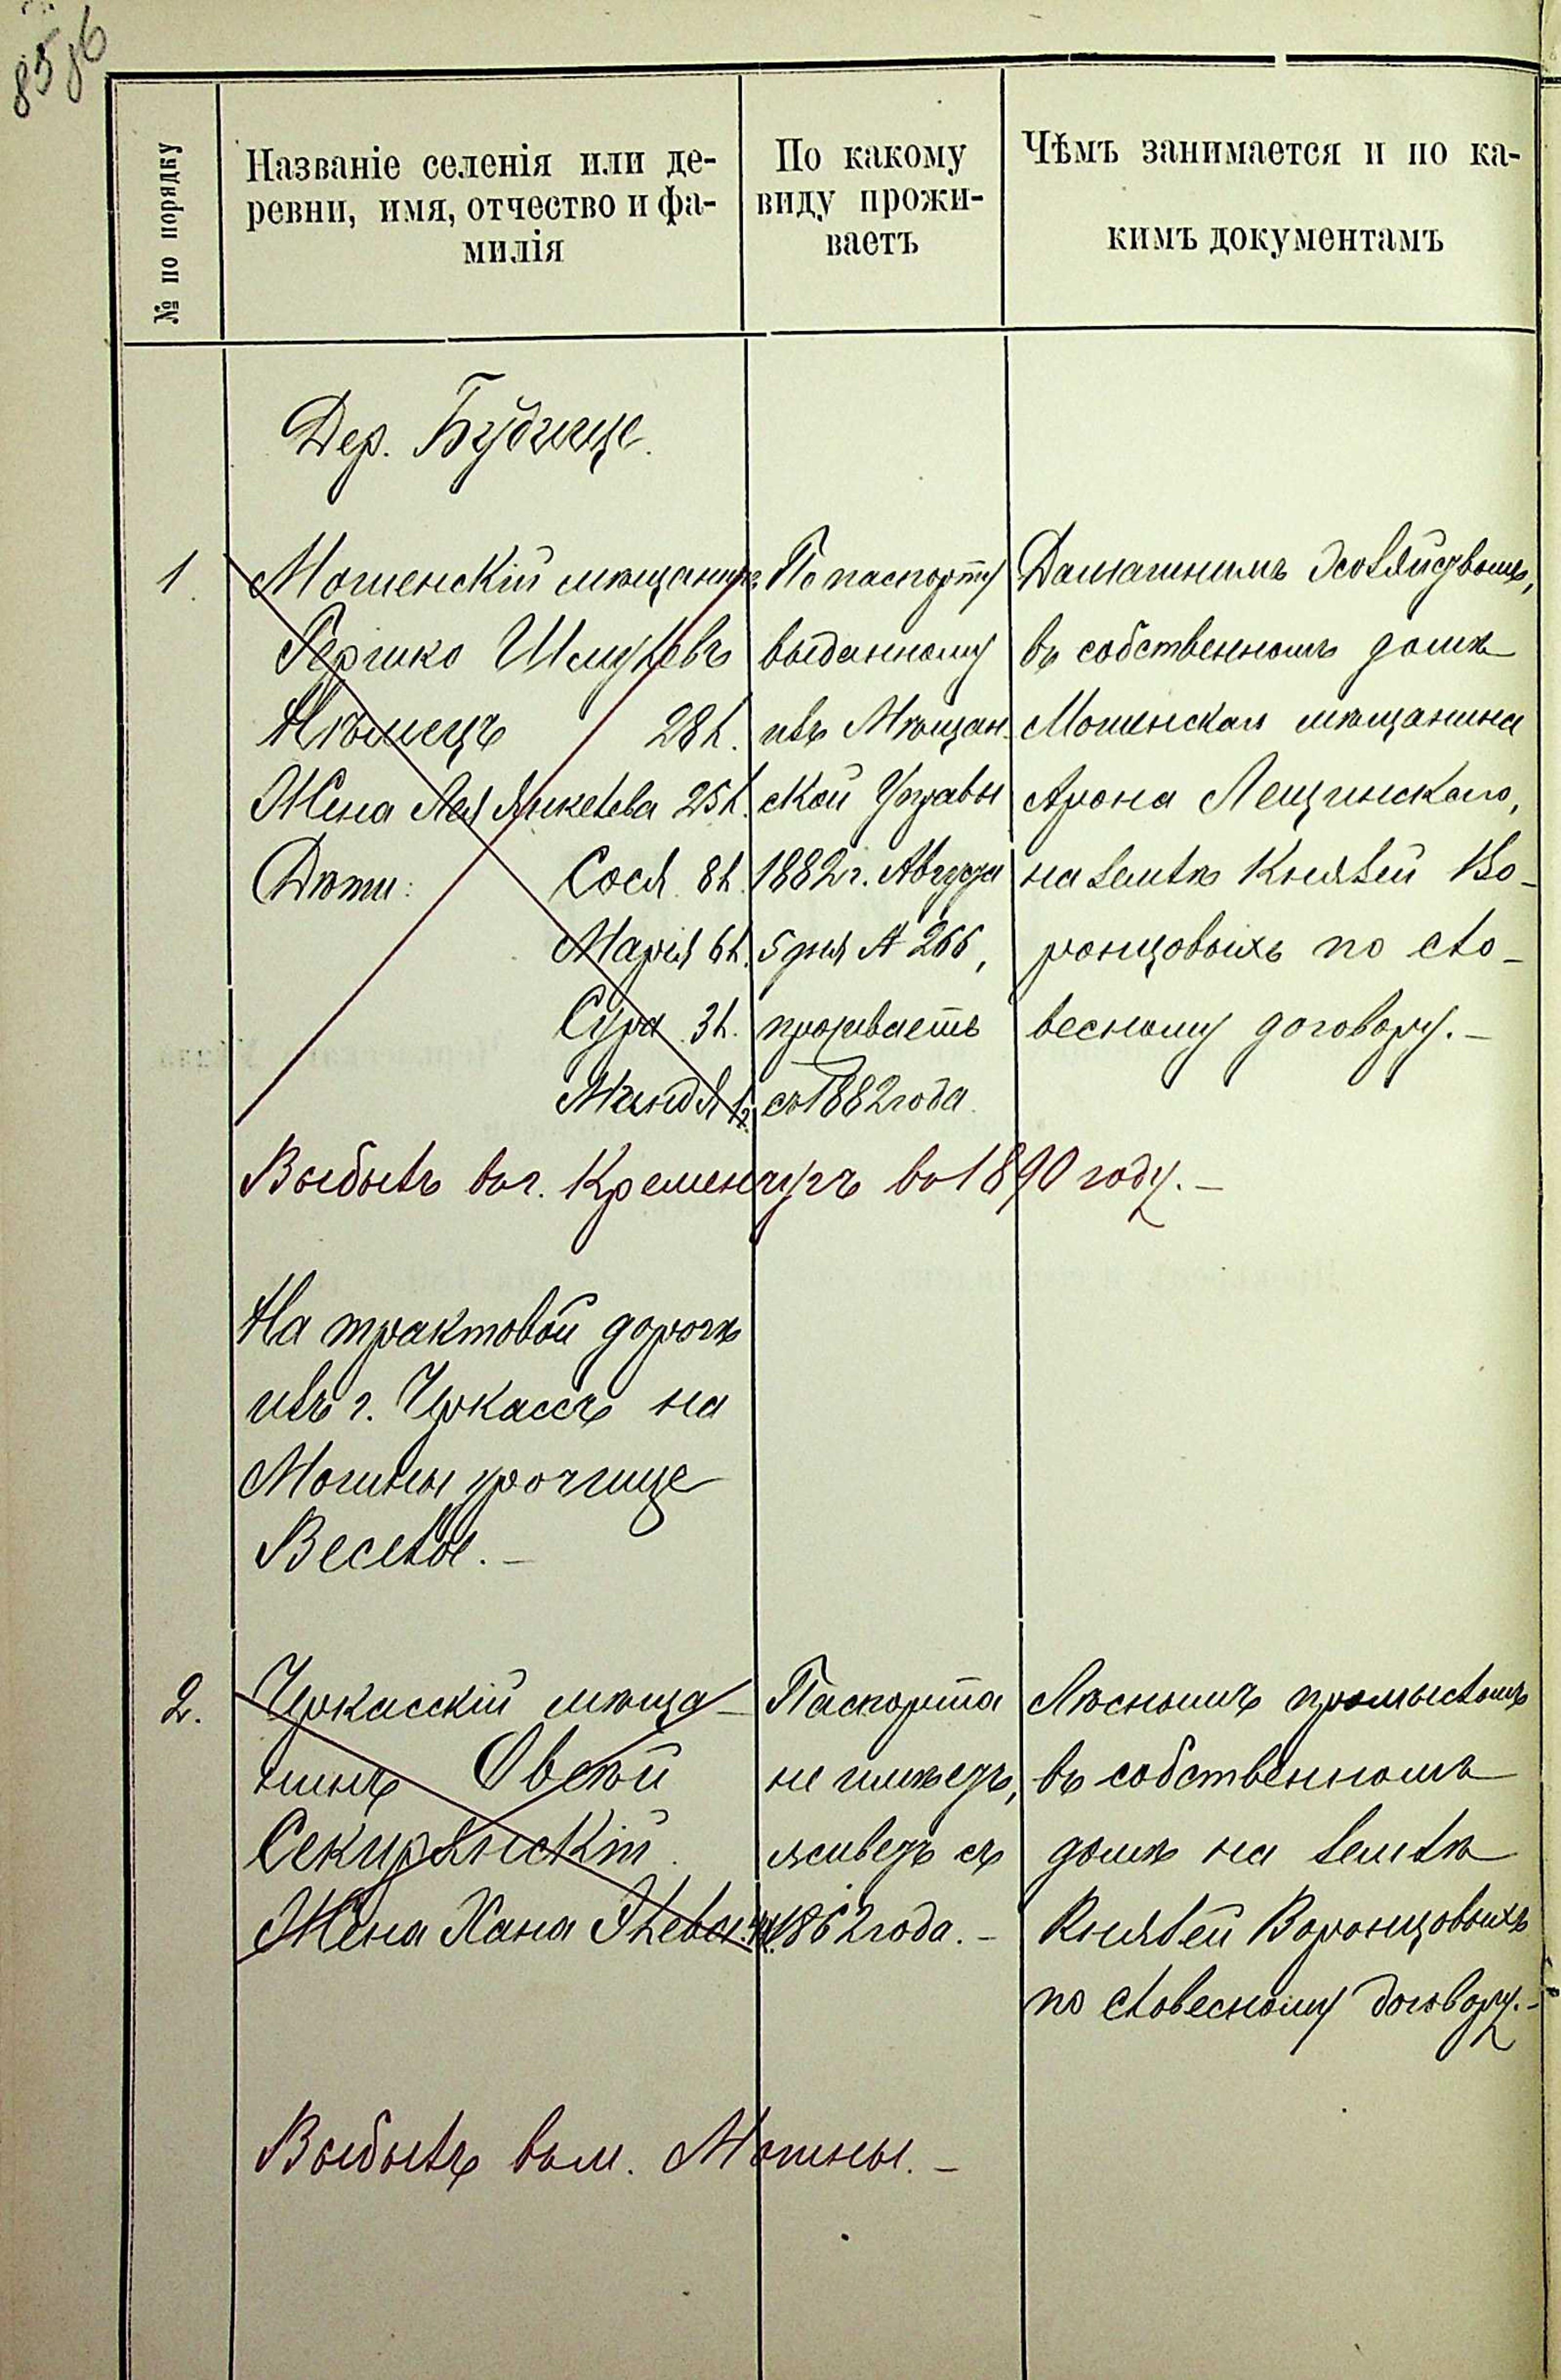 85 86
№ по порядку
Названіе селенія или де-
ревни, имя, отчество и фа-
милія
По какому
виду прожи-
ваетъ
Чѣмъ занимается и по ка-
кимъ документамъ
Дер. Будище.
1.
Мошенскій мѣщанинъ
Гершко Шмулевъ
Нѣмецъ 28 л.
Жена Лея Янкелева 25 л.
Дѣти: Сося 8 л.
Марія 6 л.
Сура 3 л.
Миндя 1 г.
По паспорту
выданному
изъ Мѣщан-
ской Управы
1882 г. Августа
5 дня № 266,
проживаетъ
съ 1882 года.
Домашнимъ хозяйствомъ,
въ собственномъ домѣ
Мошенскаго мѣщанина
Арона Лещинскаго,
на землѣ Князей Во-
ронцовыхъ по сло-
весному договору. –
Выбылъ въ г. Кременчугъ въ 1890 году. –
На трактовой дорогѣ
изъ г. Черкассъ на
Мошны урочище
Веселое. –
2.
Черкасскій мѣща-
нинъ Овсѣй
Секирянскій.
Жена Хана
Паспорта
не имѣетъ,
живетъ съ
1862 года. –
Лѣснымъ промысломъ
въ собственномъ
домѣ на землѣ
Князей Воронцовыхъ
по словесному договору. –
Выбылъ въ м. Мошны. –